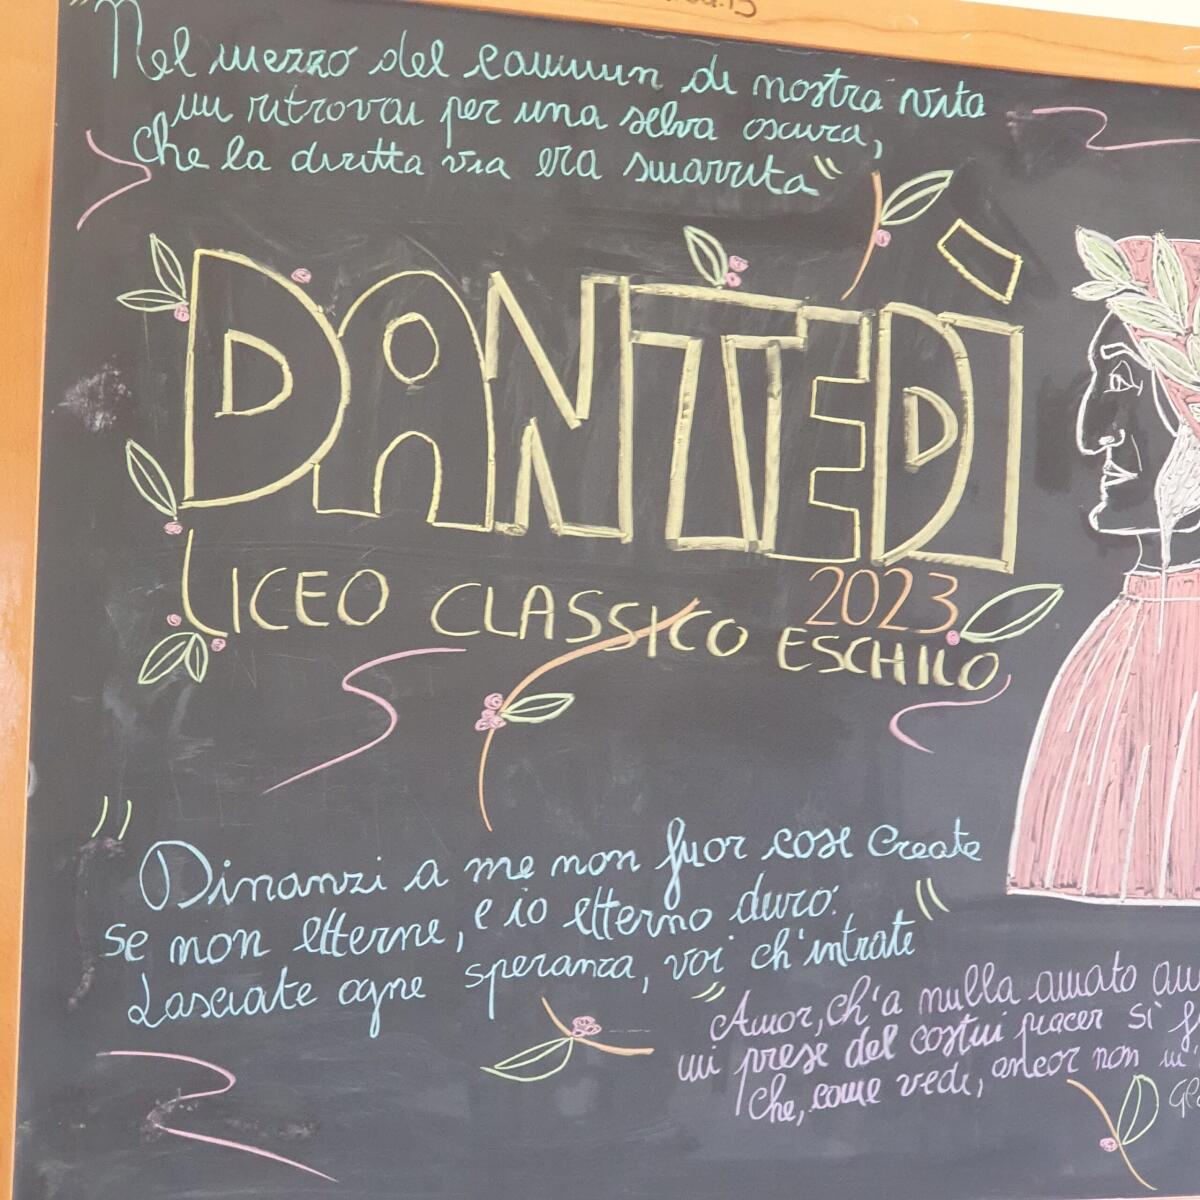 "Nel mezzo del cammin di nostra vita
mi ritrovai per una selva oscura,
che la diritta via era smarrita"
DANTEDÌ
2023
LICEO CLASSICO ESCHILO
"Dinanzi a me non fuor cose create
se non etterne, e io etterno duro.
Lasciate ogne speranza, voi ch'intrate"
"Amor, ch'a nulla amato
mi prese del costui piacer sì
che, come vedi, ancor non m'